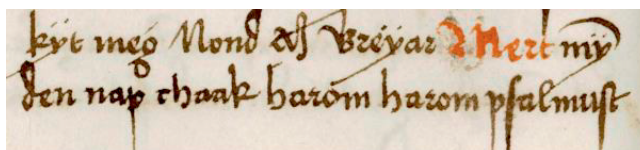 kÿt meg Nond ah Breÿar Mert mÿ
den nap chaak harom harom psalmust